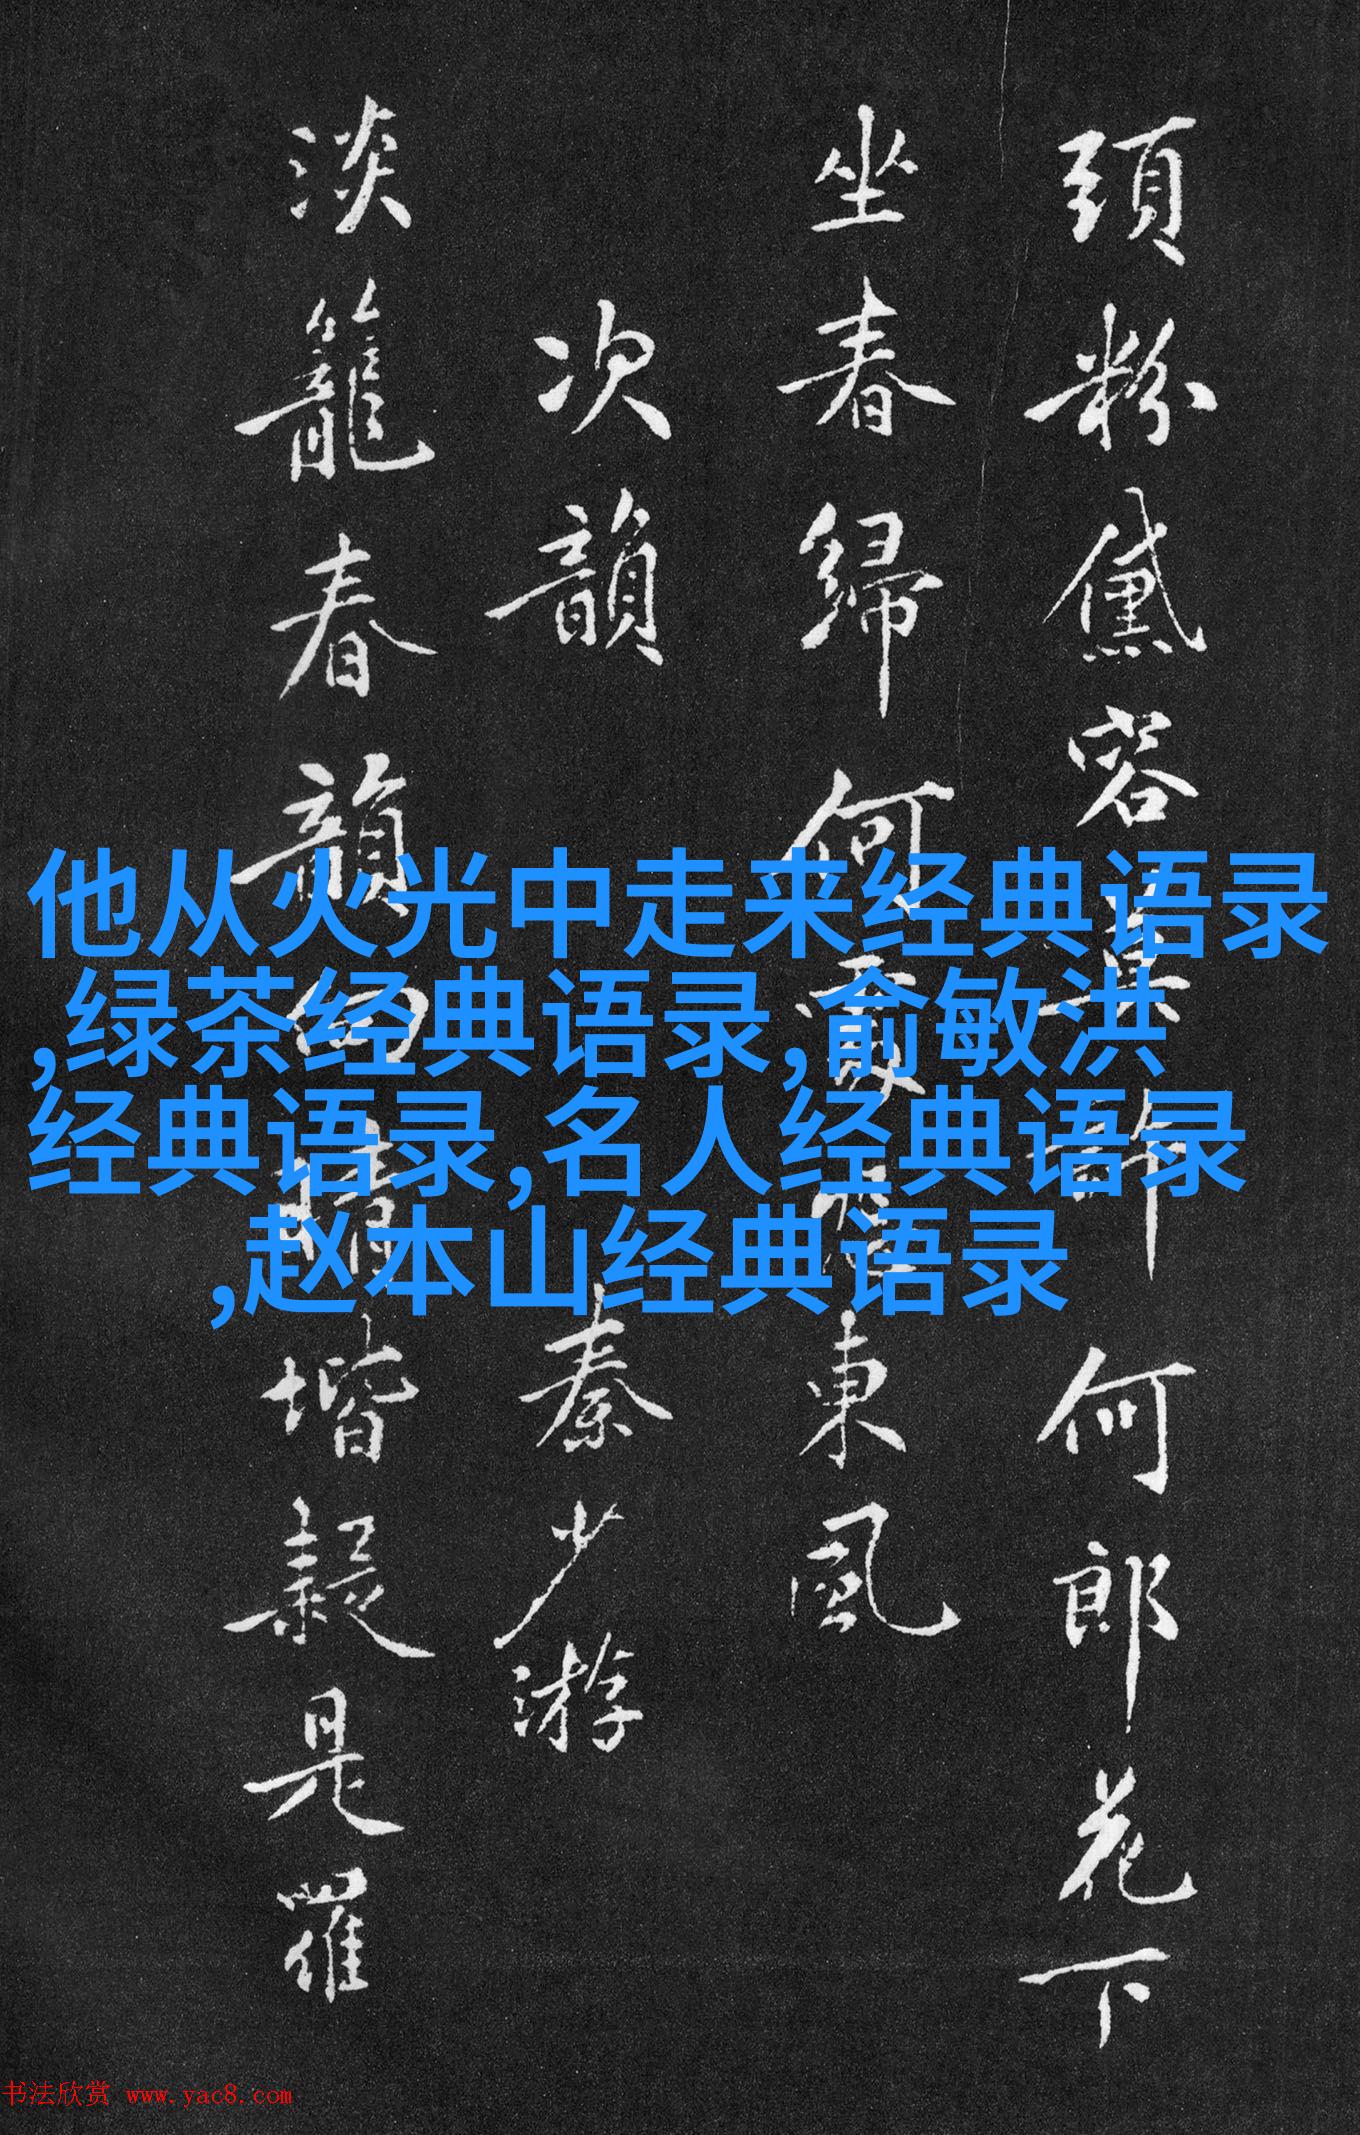 頭粉黛容
何郎花下
坐春歸何
東風
次韻
秦少游
淡籠春韻
堦疑是羅
他从火光中走来经典语录
,绿茶经典语录,俞敏洪
经典语录,名人经典语录
,赵本山经典语录
书法欣赏 www.yac8.com